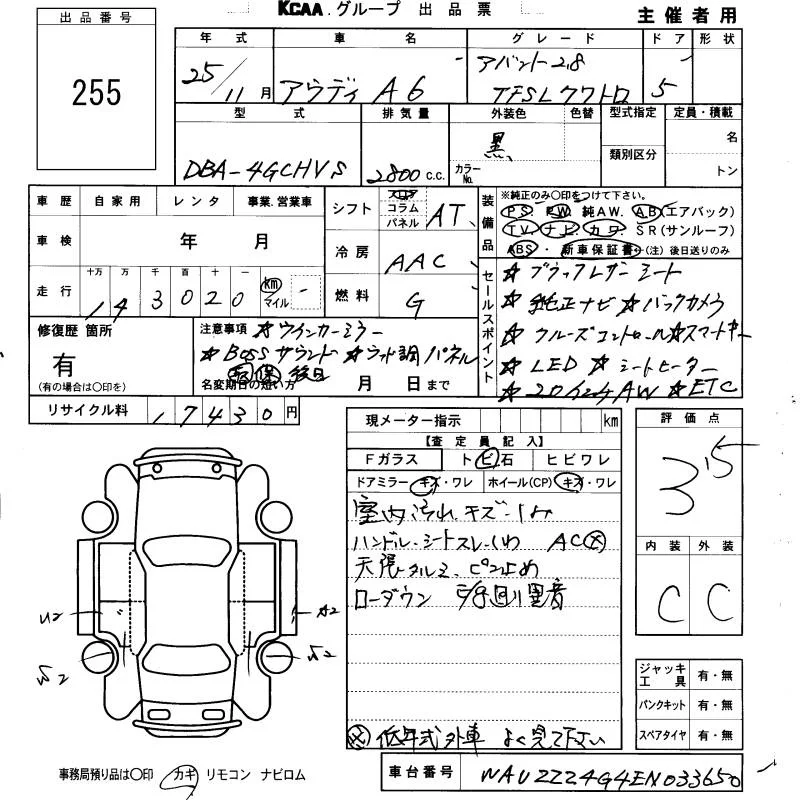 KCAA.グループ 出品票
主催者用
出品番号
255
年式 車名 グレード ドア 形状
25/11月 アウディ A6 アバント2.8 TFSIクワトロ 5
型式 排気量 外装色 色替 型式指定 定員・積載
DBA-4GCHVS 2800c.c. 黒 カラーNo. 類別区分 名 トン
車歴 自家用 レンタ 事業.営業車
シフト フロア コラム パネル AT
装備品
※純正のみ○印をつけて下さい。
PS. PW. 純AW. AB(エアバック)
TV. ナビ. カワ. SR(サンルーフ)
ABS・新車保証書←(注)後日送りのみ
車検 年 月
冷房 AAC
走行 十万 万 千 百 十 一
143020 km マイル
燃料 G
セールスポイント
☆ブラックレザーシート
☆純正ナビ ☆バックカメラ
☆クルーズコントロール ☆スマートキー
☆LED ☆シートヒーター
☆20インチAW ☆ETC
修復歴 箇所
有
(有の場合は○印を)
注意事項 ☆ウインカーミラー
☆BOSEサウンド ☆ウッド調パネル
保 後日
名変期日の短い方 月 日まで
リサイクル料 17430円
現メーター指示 km
【査定員記入】
Fガラス トビ石 ヒビワレ
ドアミラー キズ・ワレ ホイール(CP) キズ・ワレ
室内汚れ.キズ.シミ
ハンドル.シートスレ.シワ AC
天張タルミ.ピン止め
ローダウン
低年式外車 よく見て下さい
評価点
3.5
内装 外装
C C
U2
A2
ジャッキ工具 有・無
パンクキット 有・無
スペアタイヤ 有・無
事務局預り品は○印 カギ リモコン ナビロム
車台番号 WAUZZZ4G4EN033650